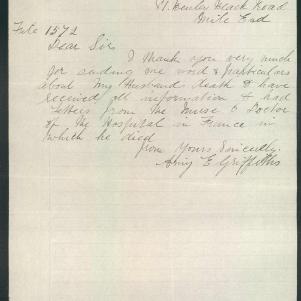 Henley Beach Road
Mile End
File 1572
Dear Sir
I thank you very much
for sending me word & particulars
about my Husband death I have
received all information & had
letters from the Nurse & Doctor
of the Hospital in France in
which he died
from Yours Sincerely.
Amy E Griffiths